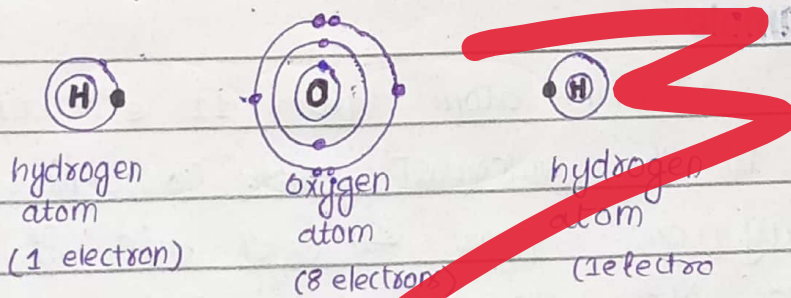 H
O
H
hydrogen
atom
(1 electron)
oxygen
atom
(8 electrons)
hydrogen
atom
(1electro